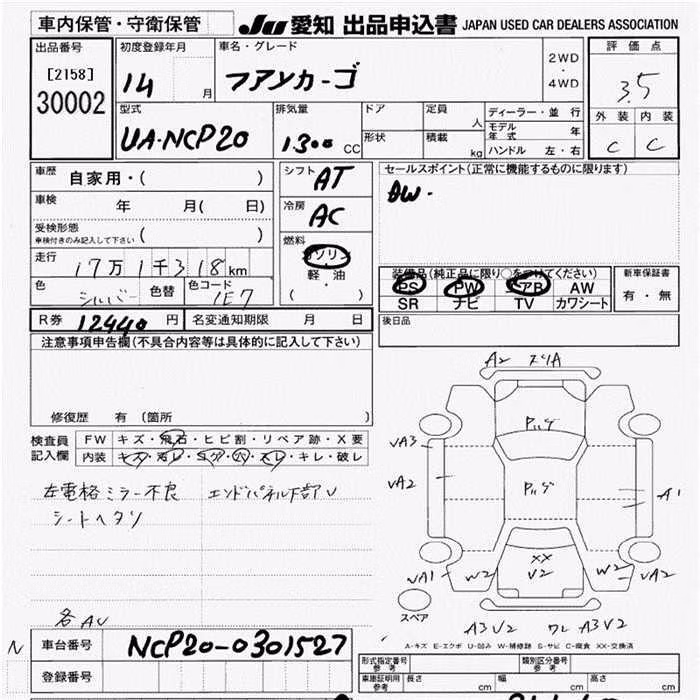 車内保管・守衛保管
JU 愛知 出品申込書 JAPAN USED CAR DEALERS ASSOCIATION
出品番号
[2158]
30002
初度登録年月
14 月
車名・グレード
フアンカーゴ
2WD
・
4WD
評価点
3.5
外装 内装
C C
型式
UA-NCP20
排気量
1.300 CC
ドア
形状
定員 人
積載 kg
ディーラー・並行
モデル年式 年
ハンドル 左・右
車歴 自家用・( )
車検 年 月( 日)
受検形態
車検付きのみ記入して下さい ( )
走行 17万1千318km
色 シルバー 色替 色コード 1E7
シフト AT
冷房 AC
燃料
ガソリン
・
軽・油
( )
セールスポイント(正常に機能するものに限ります)
AW.
装備品(純正品に限り○をつけてください)
PS PW エアB AW
SR ナビ TV カワシート
新車保証書
有・無
R券 12440 円 名変通知期限 月 日
後日品
注意事項申告欄(不具合内容等は具体的に記入して下さい)
修復歴 有 〔箇所 〕
検査員
記入欄
FW キズ・飛石・ヒビ割・リペア跡・X要
内装 キズ・汚レ・コゲ・穴・スレ・キレ・破レ
左電格ミラー不良 エンドパネル下部U
シートヘタリ
各AU
A2 スリA
Pｼｹﾞ
UA3
UA2
Pｼｹﾞ
A1
XX
V2
UA1 W2 W2 UA2
スペア
A3V2 ワレ A3V2
A-キズ E-エクボ U-凹み W-補修跡 S-サビ C-腐食 XX-交換済
N
車台番号 NCP20-0301527
登録番号
形式指定番号
参考
類別区分番号
参考
車庫証明用
参考
長さ cm
幅 cm
高さ cm